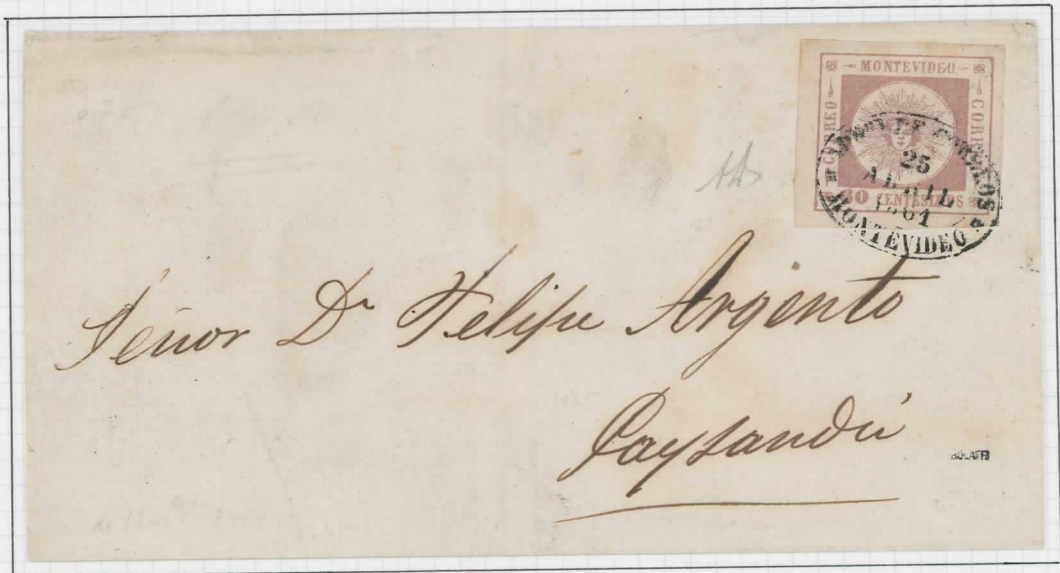 MONTEVIDEO
CORREO
CORREO
CENTESIMOS
ADMON DE CORREOS
25
ABRIL
1861
MONTEVIDEO
Señor Dn Felipe Argento
Paysandú
BOLAFFI